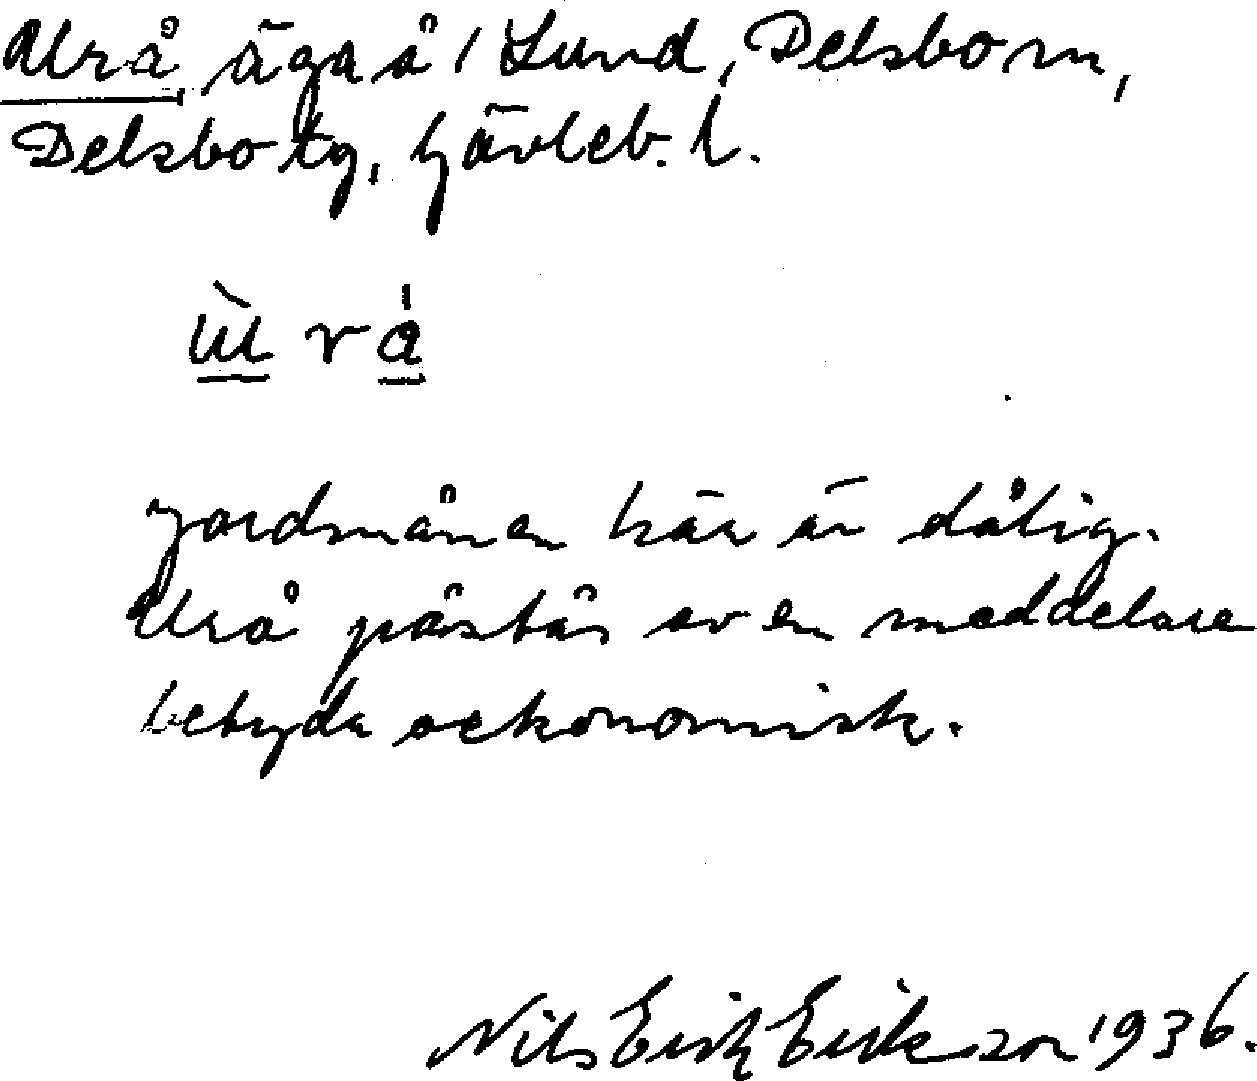 Urå, äga å 1 Lund, Delsbo sn,
Delsbo tg, Gävleb. l.
ùrá
Jordmånen här är dålig.
Urå påstås av en meddelare
betyda oekonomisk.
Nils Erik Eriksson 1936.